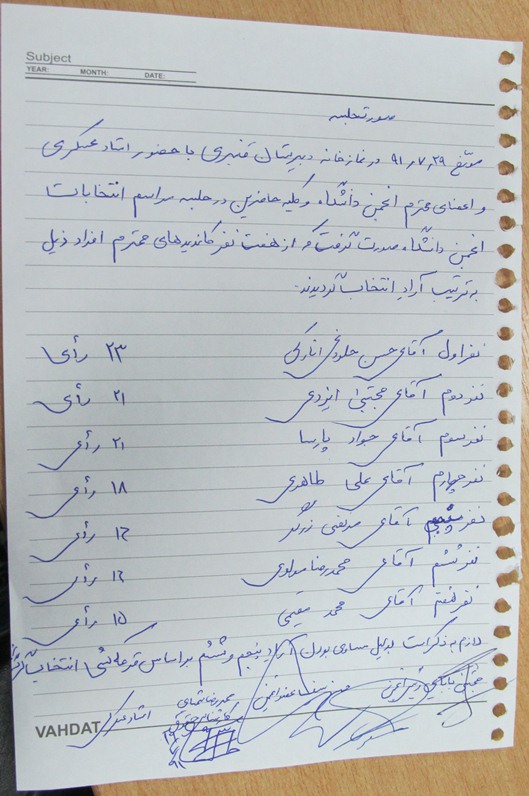 Subject
YEAR: MONTH: DATE:
صورتجلسه
مورخ ۹۱٫۷٫۲۹ در نمازخانه دبیرستان قنبری با حضور استاد عسکری
و اعضای محترم انجمن دانشگاه و کلیه حاضرین در جلسه مراسم انتخابات
انجمن دانشگاه صورت گرفت که از هفت نفر کاندیدهای محترم افراد ذیل
به ترتیب آراء انتخاب گردیدند.
نفر اول آقای حسن انارکی ۲۳ رأی
نفر دوم آقای مجتبی ایزدی ۲۱ رأی
نفر سوم آقای جواد پارسا ۲۱ رأی
نفر چهارم آقای علی طاهری ۱۸ رأی
نفر پنجم آقای مرتضی زرگر ۱۶ رأی
نفر ششم آقای محمدرضا مولودی ۱۶ رأی
نفر هفتم آقای محمد مقیمی ۱۵ رأی
لازم به ذکر است بدلیل مساوی بودن آراء پنجم و ششم بر اساس قرعه کشی انتخاب
استاد عسکری
VAHDAT